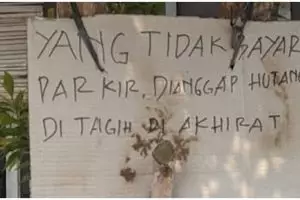 YANG TIDAK BAYAR
PARKIR, DIANGGAP HUTANG
DI TAGIH DI AKHIRAT